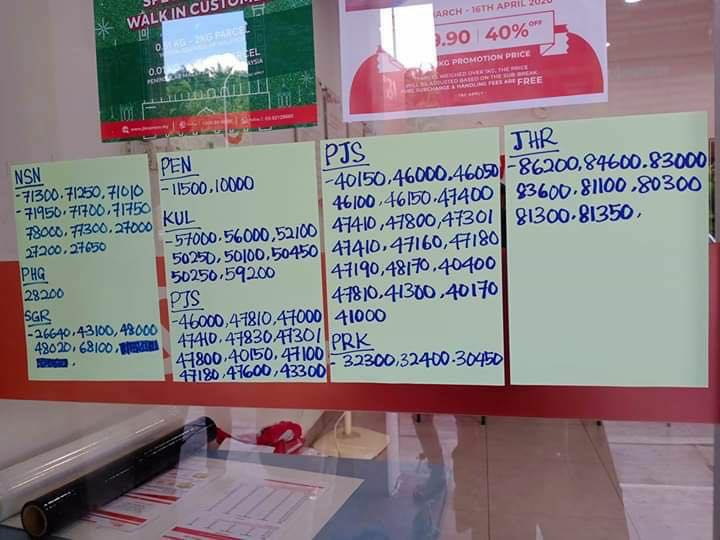 WALK IN CUSTOM
0.01 KG - 2KG PARCEL
MARCH - 16TH APRIL 2020
9.90 | 40% OFF
KG PROMOTION PRICE
WEIGHED OVER 1KG, THE PRICE
WILL BE ADJUSTED BASED ON THE SUB BREAK
FUEL SURCHARGE & HANDLING FEES ARE FREE
NSN
-71300,71250,71010
-71950,71700,71750
78000,77300,27000
27200,27650
PHG
28200
SGR
-26640,43100,48000
48020,68100,
PEN
-11500,10000
KUL
-57000,56000,52100
50250,50100,50450
50250,59200
PJS
-46000,47810,47000
47410,47830,47301
47800,40150,47100
47180,47600,43300
PJS
-40150,46000,46050
46100,46150,47400
47410,47800,47301
47410,47160,47180
47190,48170,40400
47810,41300,40170
41000
PRK
-32300,32400-30450
JHR
-86200,84600,83000
83600,81100,80300
81300,81350,